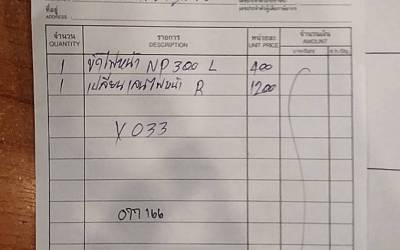 ที่อยู่
จำนวน รายการ หน่วยละ จำนวนเงิน
QUANTITY DESCRIPTION UNIT PRICE AMOUNT
1 ขัดไฟหน้า NP 300 L 400
1 เปลี่ยนเลนส์ไฟหน้า R 1200
X 033
077166